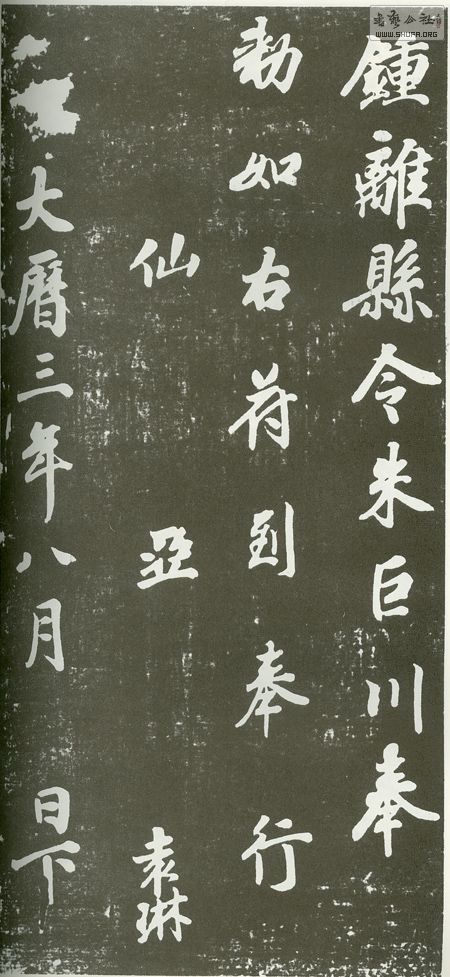 鍾離縣令朱巨川奉
勅如右符到奉行
仙 亞 袁琳
大曆三年八月 日下
書藝公社
WWW.SHUFA.ORG